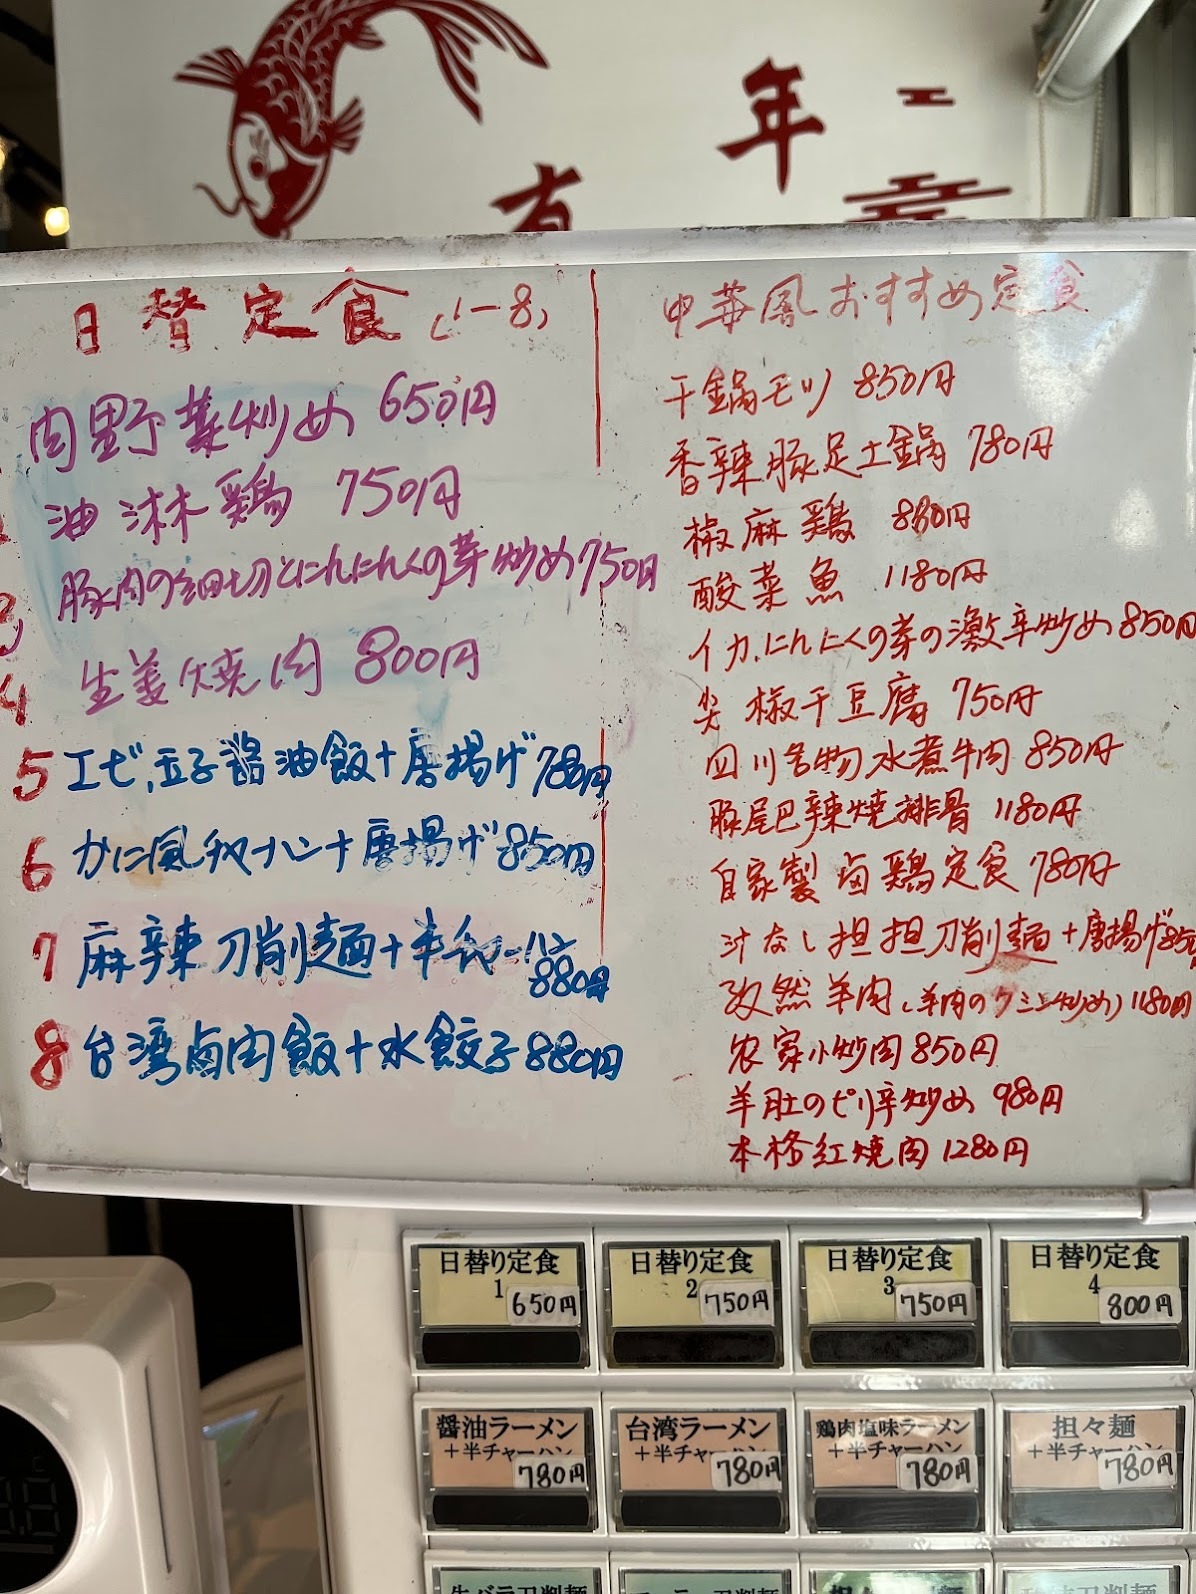 年
有
日替定食(1-8)
肉野菜炒め 650円
油淋鶏 750円
豚肉の細切とにんにくの芽炒め750円
生姜焼肉 800円
5 エビ,玉子醤油飯+唐揚げ780円
6 かに風チャーハン+唐揚げ850円
7 麻辣刀削麺+半チャーハン
880円
8 台湾卤肉飯+水餃子880円
中華風おすすめ定食
干鍋モツ 850円
香辣豚足土鍋 780円
椒麻鶏 880円
酸菜魚 1180円
イカ,にんにくの芽の激辛炒め850円
尖椒干豆腐 750円
四川名物水煮牛肉850円
豚尾巴辣焼排骨 1180円
自家製卤鶏定食780円
汁なし担担刀削麺+唐揚げ850
孜然羊肉(羊肉のクミン炒め)1180円
农家小炒肉850円
羊肚のピリ辛炒め 980円
本格红焼肉 1280円
日替り定食
1 650円
日替り定食
2 750円
日替り定食
3 750円
日替り定食
4 800円
醤油ラーメン
+半チャーハン
780円
台湾ラーメン
+半チャ
780円
鶏肉塩味ラーメン
+半チャーハン
780円
担々麺
+半チャーハン
780円